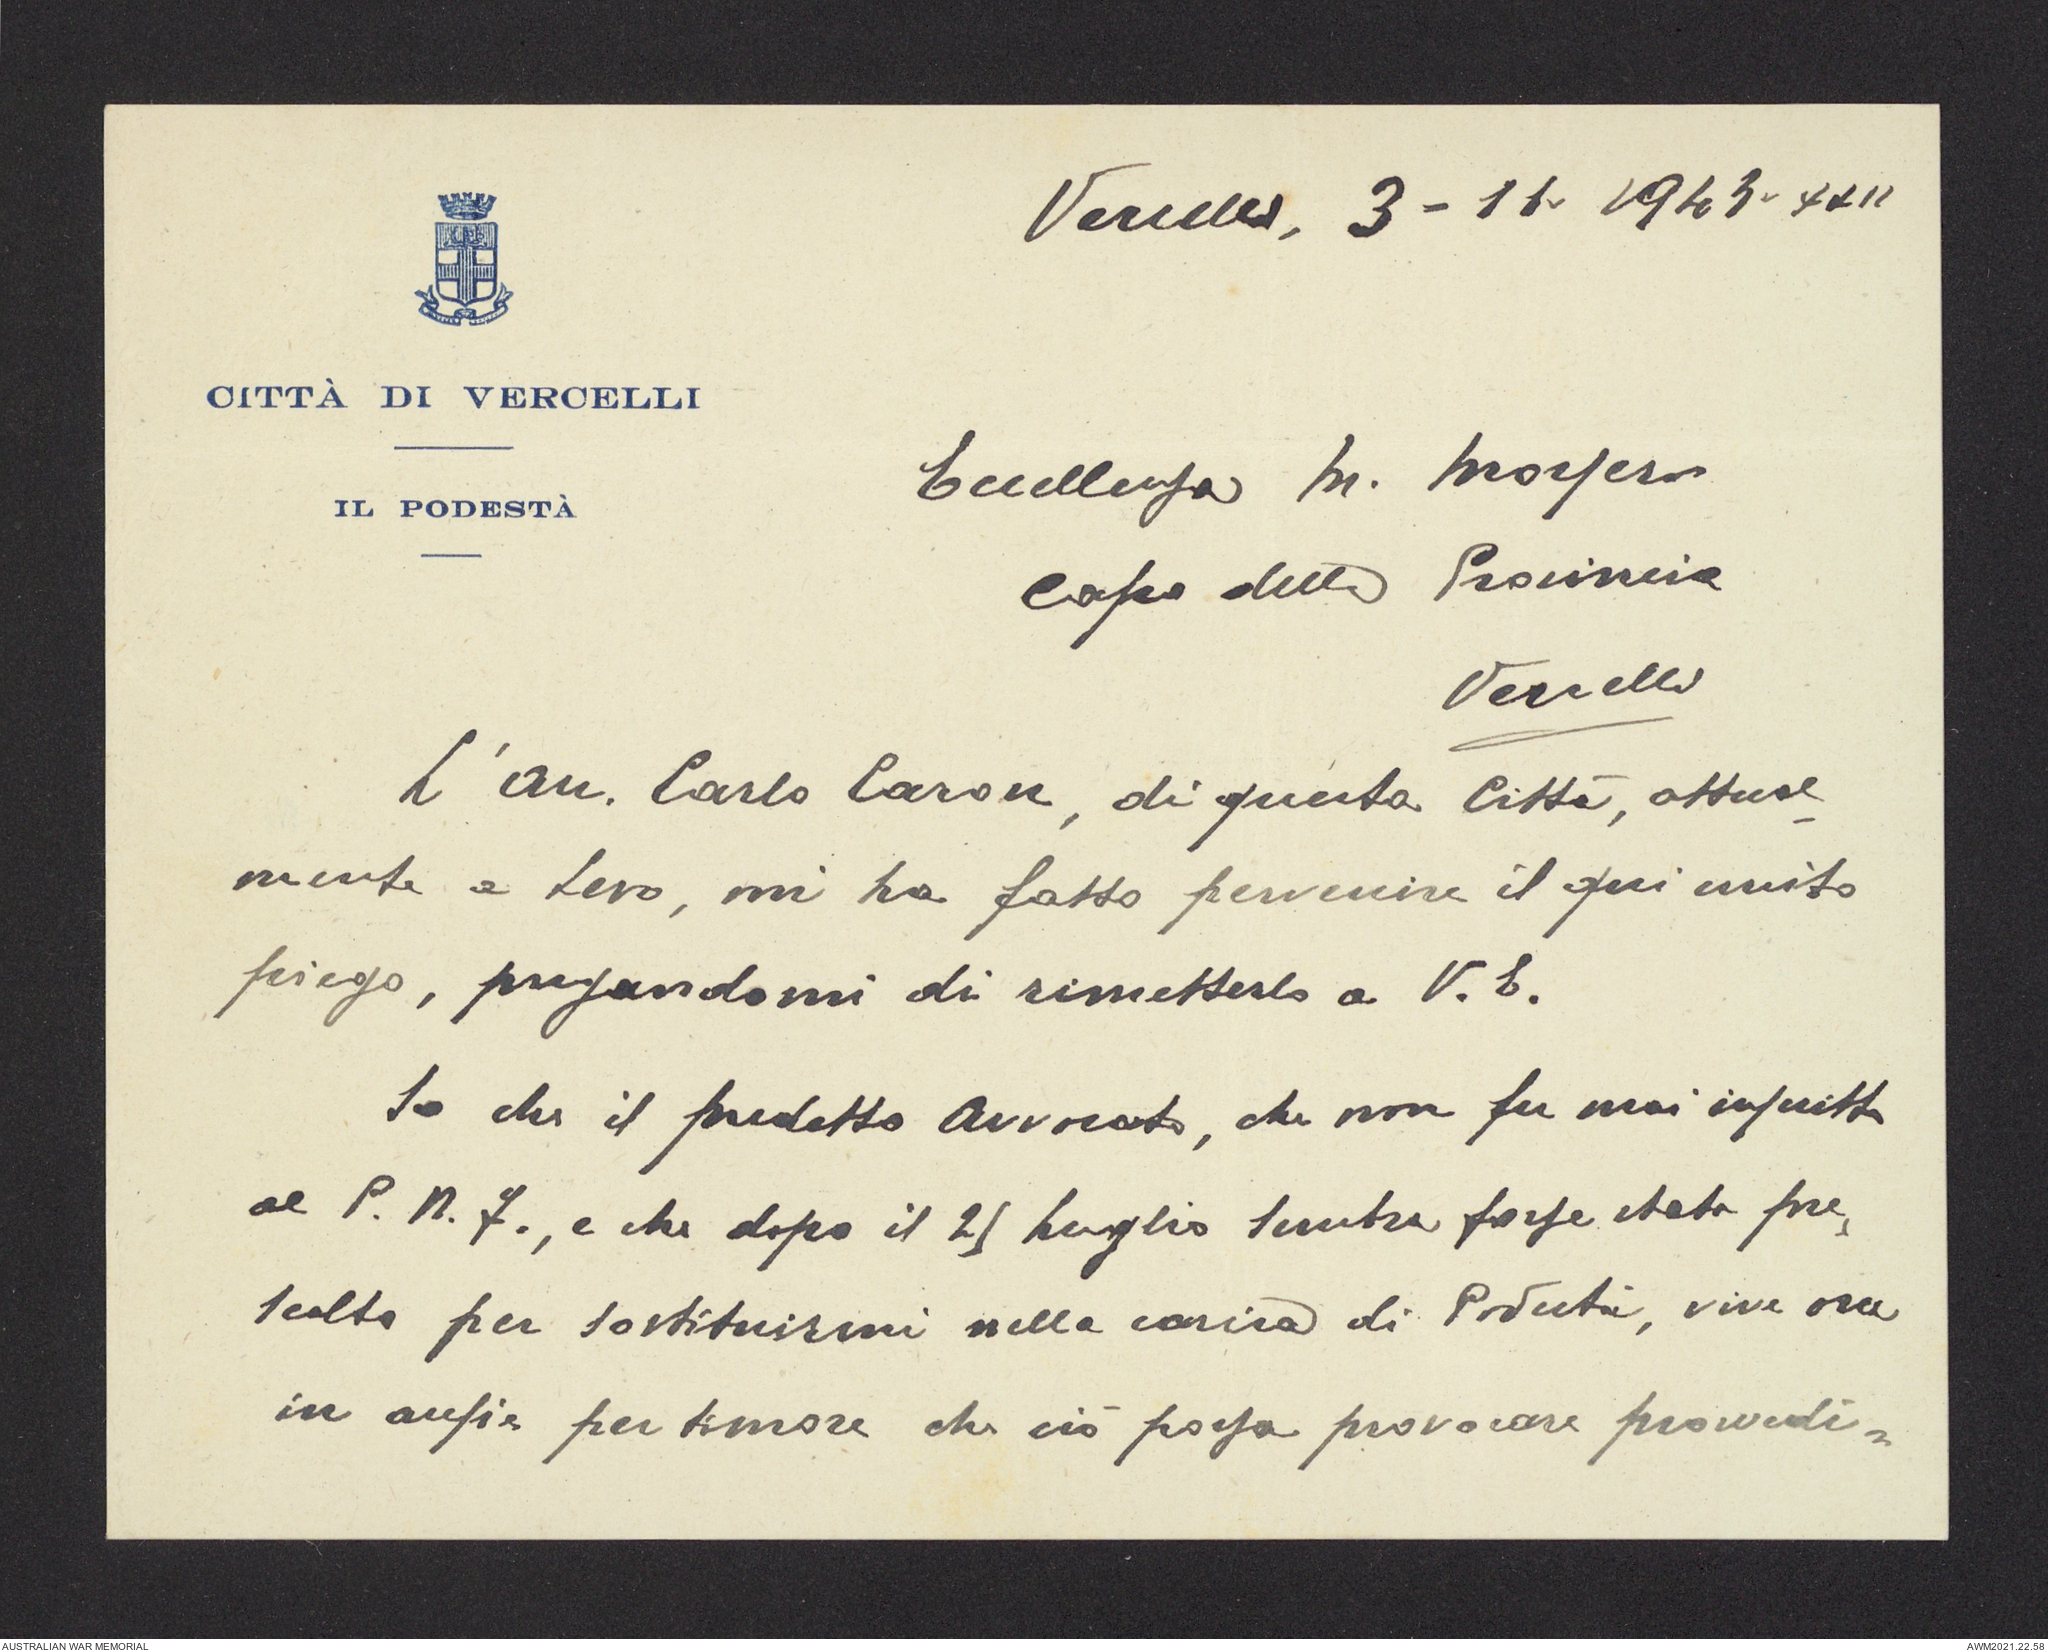 Vercelli, 3 - 11 - 1943 - XXII
CITTÀ DI VERCELLI
IL PODESTÀ
Eccellenza M. Morsero
Capo della Provincia
Vercelli
L'avv. Carlo Caron, di questa Città, attual-
mente a Leva, mi ha fatto pervenire il qui unito
piego, pregandomi di rimetterlo a V. E.
So che il predetto Avvocato, che non fu mai inscritto
al P. N. F., e che dopo il 25 luglio sembra fosse stato pre-
scelto per sostituirmi nella carica di Podestà, vive ora
in ansia per timore che ciò possa provocare provvedi-
AUSTRALIAN WAR MEMORIAL
AWM2021.22.58